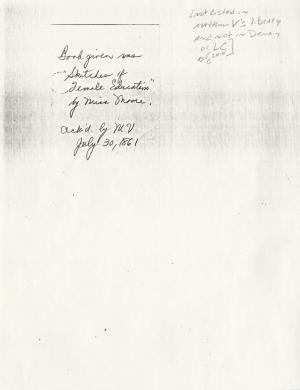 Book given was
"Sketches of
Female Education"
by Miss Moore.
Ack'd. by MV
July 30, 1861
[not listed in
Matthew V's library
and not in Dewey
or LC]